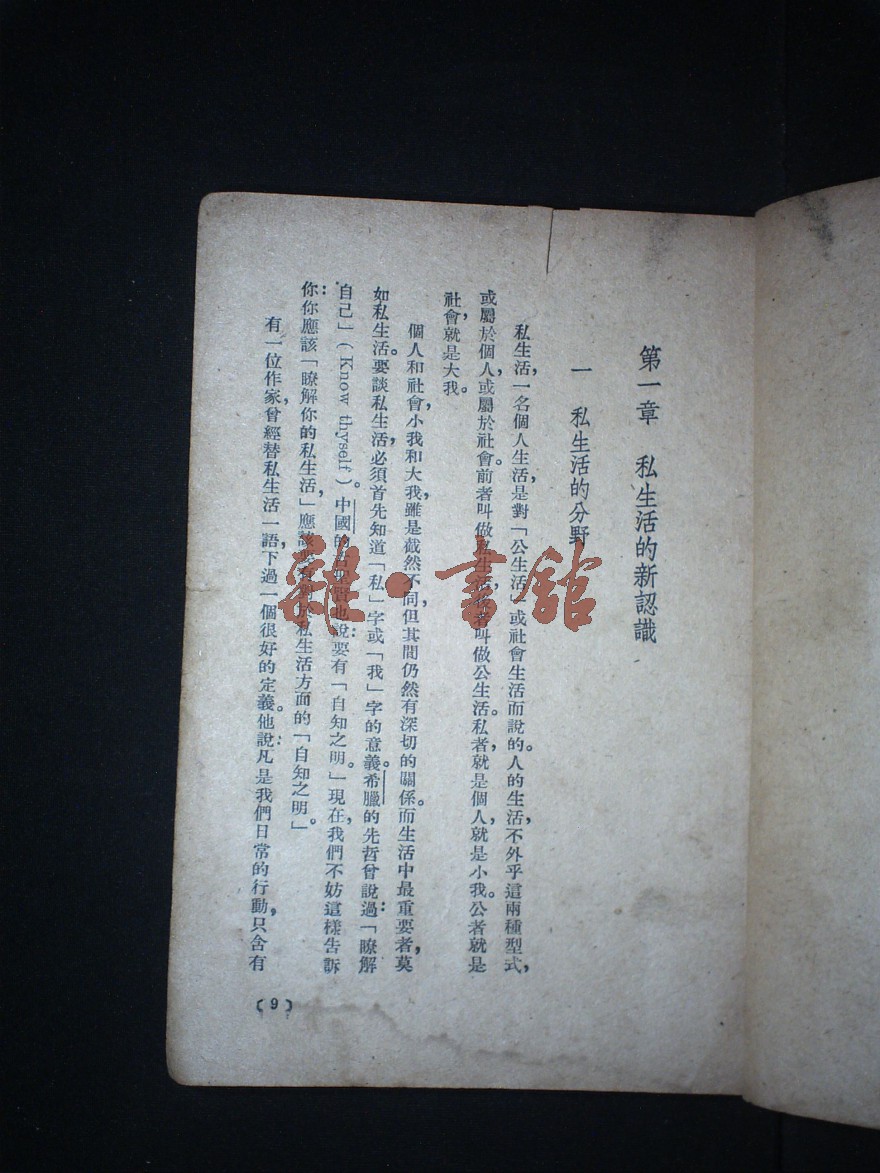 第一章　私生活的新認識
一　私生活的分野
私生活，一名個人生活，是對「公生活」或社會生活而說的。人的生活，不外乎這兩種型式，
或屬於個人，或屬於社會。前者叫做私生活，後者叫做公生活。私者就是個人，就是小我。公者就是
社會，就是大我。
個人和社會，小我和大我，雖是截然不同，但其間仍然有深切的關係。而生活中最重要者，莫
如私生活。要談私生活，必須首先知道「私」字或「我」字的意義。希臘的先哲曾說過：「瞭解
自己」（Know thyself）。中國的 也說：要有「自知之明」。現在，我們不妨這樣告訴
你：你應該「瞭解你的私生活」，應該 對於私生活方面的「自知之明」。
有一位作家，曾經替私生活一語，下過一個很好的定義。他說：凡是我們日常的行動，只含有
(9)
雜·書館